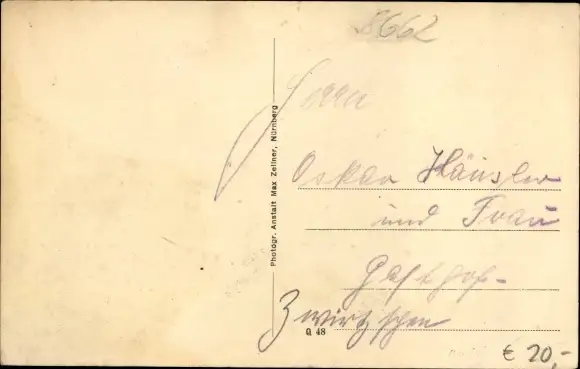 8662
Herrn
Oskar Häusler
und Frau
Gasthof-
Zwirtzschen
Photogr. Anstalt Max Zellner, Nürnberg
Q 48
€ 20,-